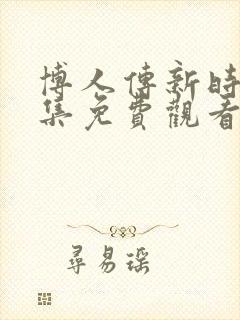 博人傳新時
集免費觀看
尋易瑤